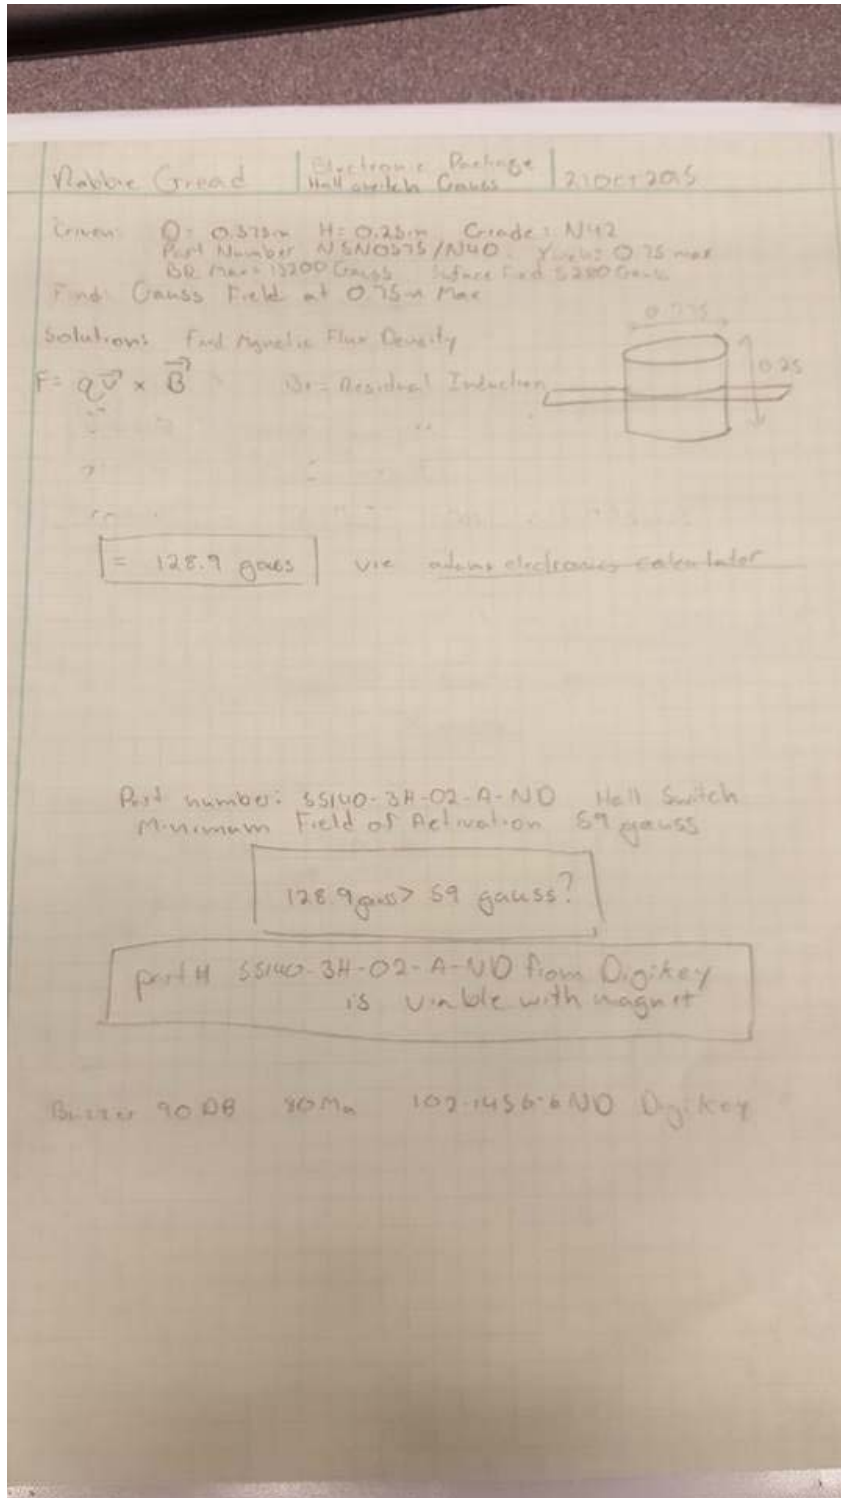 Electronic Package
Hall switch Gauss
21 Oct 2015
Given: D= 0.375in H= 0.25in Grade: N42
Part Number NSN0575/N40 0.75 max
BR Max= 13200 Gauss Surface Field 5200 Gauss
Find: Gauss Field at 0.75in Max
Solution: Find Magnetic Flux Density
F= qv × B Br= Residual Induction
0.25
= 128.9 gauss via adams electronics calculator
Part number: SS140-3H-02-A-ND Hall Switch
Minimum Field of Activation 59 gauss
128.9 gauss> 59 gauss?
part# SS140-3H-02-A-ND from Digikey
is viable with magnet
Buzzer 90 DB 80 Ma Digikey